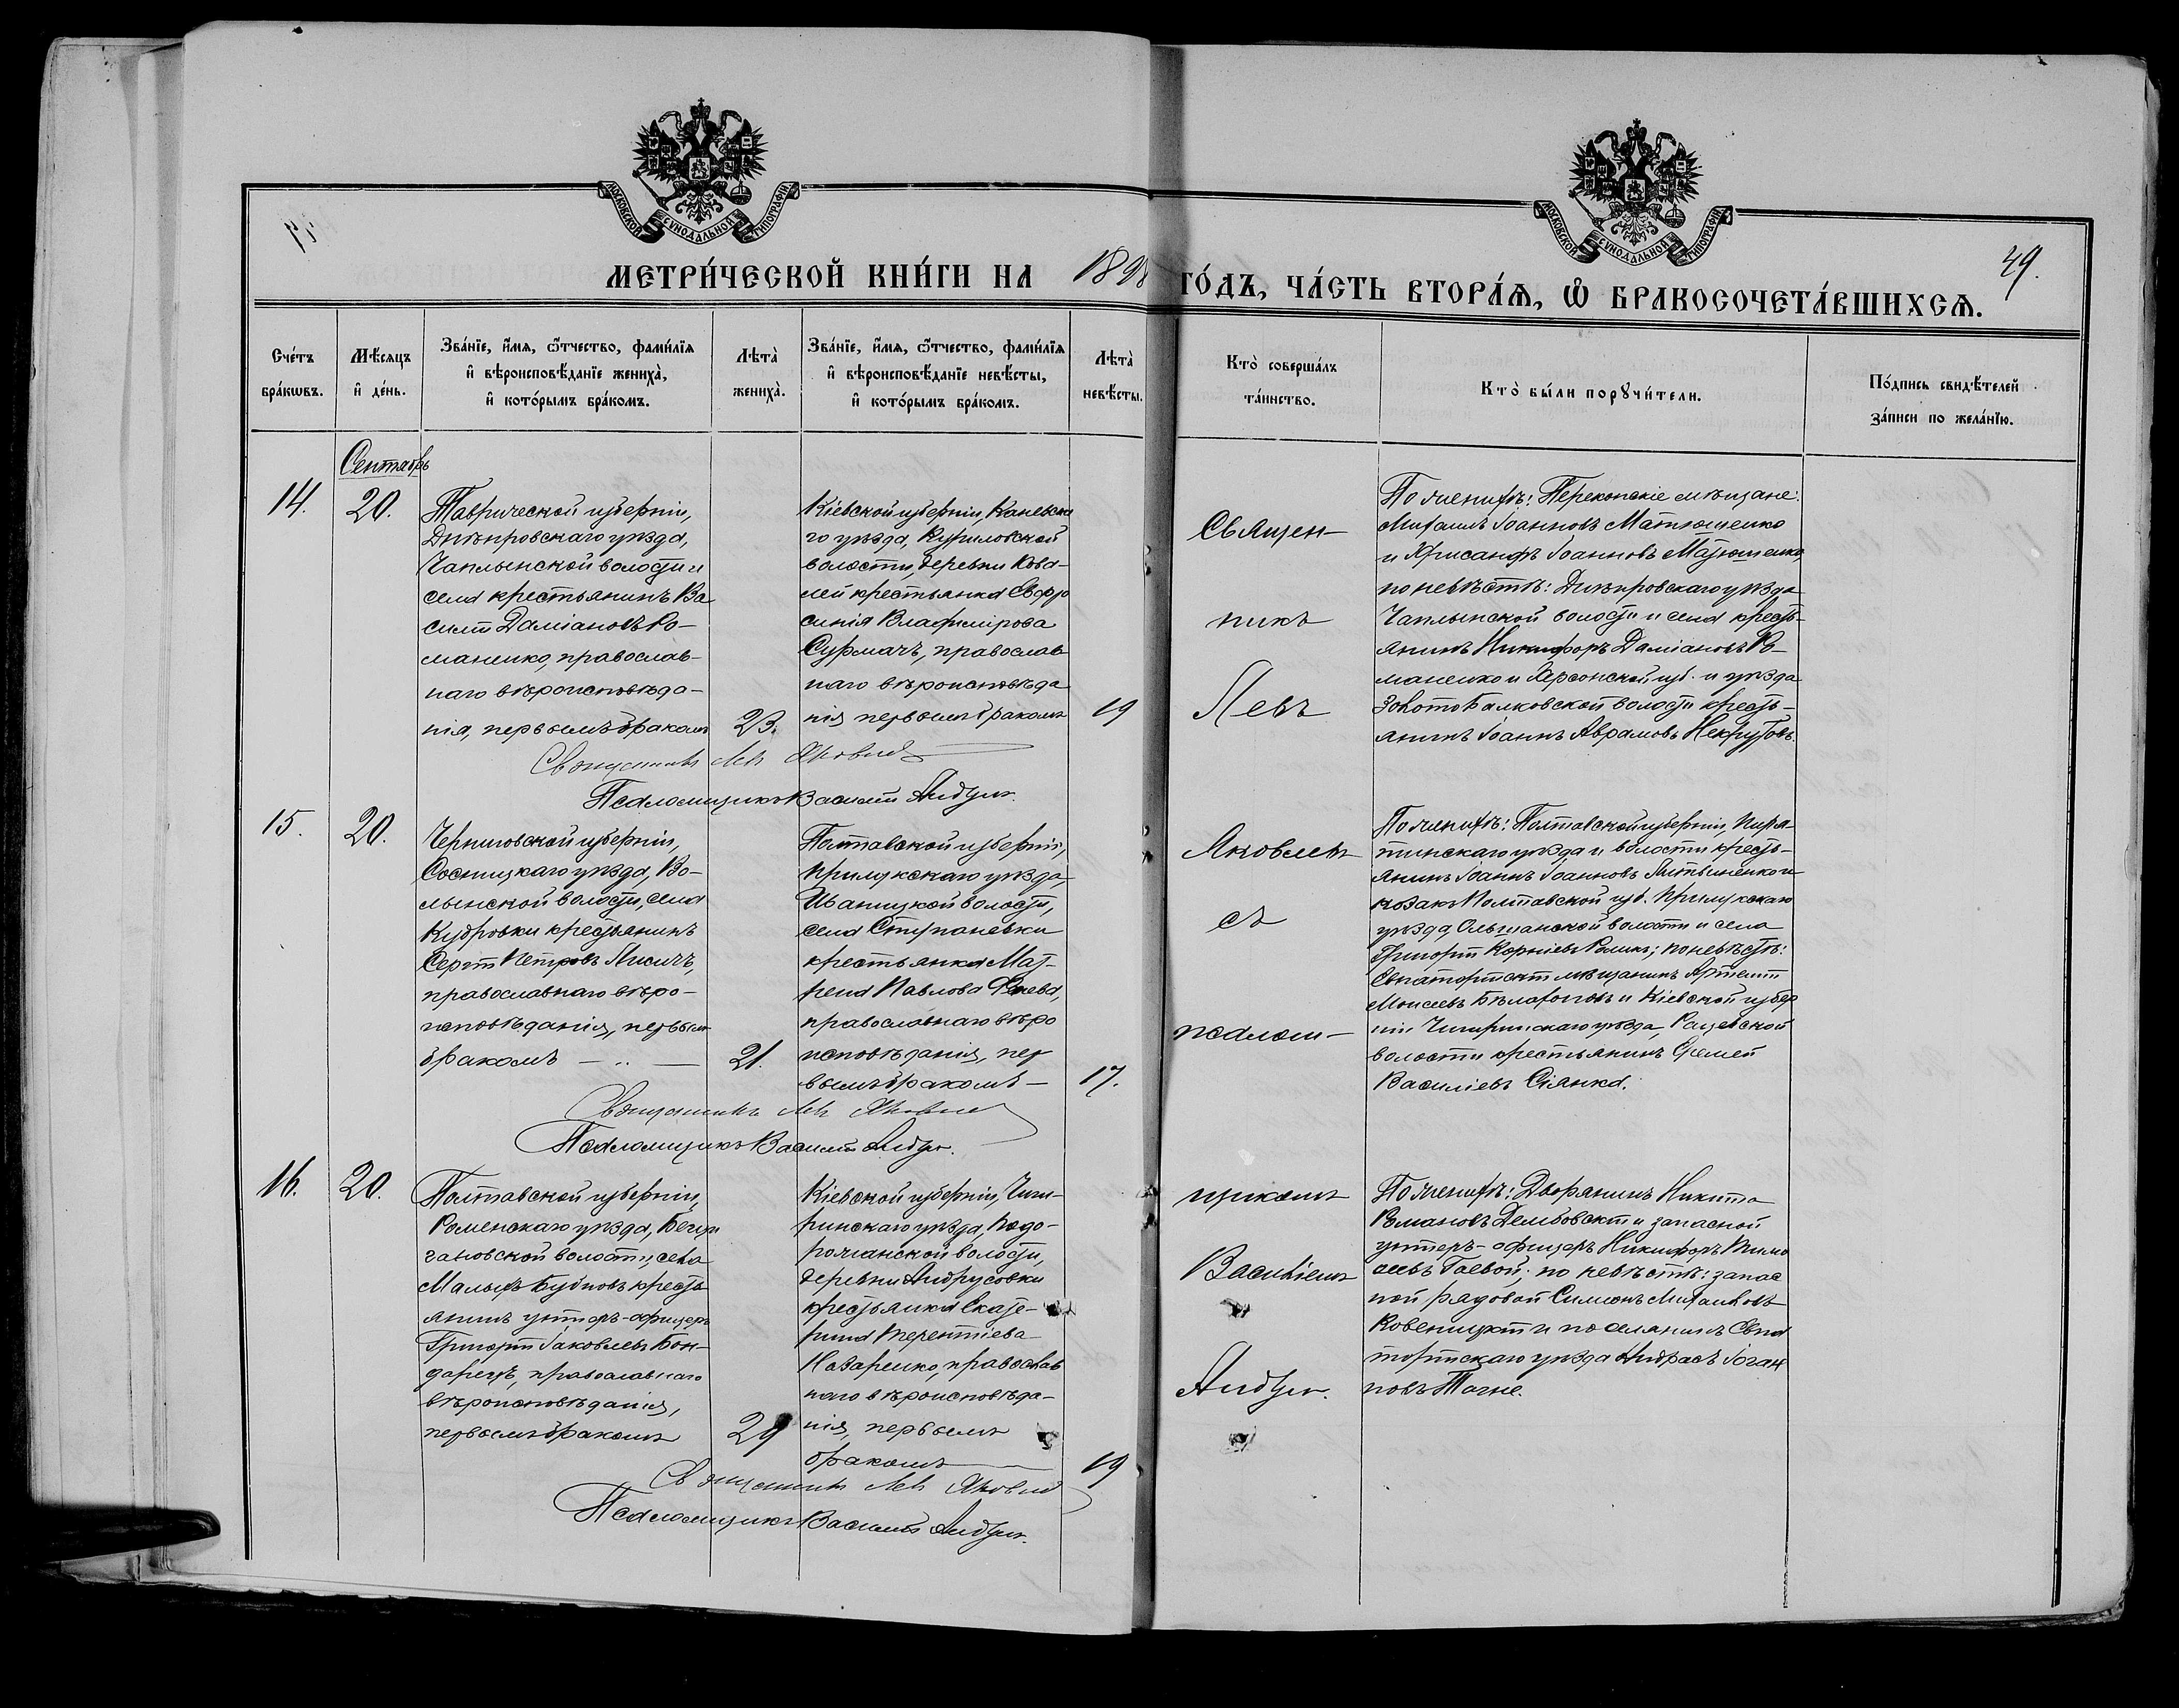 МОСКОВСКОЙ СѴНОДАЛЬНОЙ ТИПОГРАФІИ
МОСКОВСКОЙ СѴНОДАЛЬНОЙ ТИПОГРАФІИ
49.
МЕТРИ́ЧЕСКОЙ КНИ́ГИ НА 1898 ГО́ДЪ, ЧА́СТЬ ВТОРА́Ѧ, Ѽ БРАКОСОЧЕТА́ВШИХСѦ.
Сче́тъ бра́кѡвъ.
Мѣ́сѧцъ и҆ де́нь.
Зва́нїе, и҆́мѧ, ѻ҆́тчество, фами́лїѧ
и҆ вѣроисповѣ́данїе жениха̀,
и҆ кото́рымъ бра́комъ.
Лѣта̀ жениха̀.
Зва́нїе, и҆́мѧ, ѻ҆́тчество, фами́лїѧ
и҆ вѣроисповѣ́данїе невѣ́сты,
и҆ кото́рымъ бра́комъ.
Лѣта̀ невѣ́сты.
Кто̀ соверша́лъ та́инство.
Кто̀ бы́ли порꙋчи́тели.
По́дпись свидѣ́телей за́писи по жела́нїю.
Сентябрь
14.
20.
Таврической губерніи,
Днѣпровскаго уѣзда,
Чаплынской волости и
села крестьянинъ Ва
силій Даміановъ Ро-
маненко, православ-
наго вѣроисповѣда-
нія, первымъ бракомъ
23.
Кіевской губерніи, Каневска
го уѣзда, Куриловской
волости, деревни Кова-
лей крестьянка Евфро
синія Владимірова
Сурмачъ, православ
наго вѣроисповѣда
нія первымъ бракомъ
19
Священникъ Левъ Яковлевъ
Псаломщикъ Василій
По женихѣ: Перекопскіе мѣщане:
Михаилъ Іоанновъ Матюшенко
и Хрисанфъ Іоанновъ Матюшенко,
по невѣстѣ: Днѣпровскаго уѣзда
Чаплынской волости и села кресть-
янинъ Никифоръ Даміановъ Ро-
маненко и Херсонской губ. и уѣзда
Золото Балковской волости кресть-
янинъ Іоаннъ Аврамовъ Некрутовъ.
15.
20.
Черниговской губерніи,
Сосницкаго уѣзда, Во-
лынской волости, села
Кудровки крестьянинъ
Сергій Петровъ Лисичъ,
православнаго вѣро-
исповѣданія, первымъ
бракомъ
21.
Полтавской губерніи,
Прилукскаго уѣзда,
Иваницкой волости,
села Ступаковки
крестьянка Мат-
рена Павлова
православнаго вѣро
исповѣданія, пер
вымъ бракомъ
17.
Священникъ Левъ Яковлевъ
Псаломщикъ Василій
По женихѣ: Полтавской губерніи, Пиря-
тинскаго уѣзда и волости кресть-
янинъ Іоаннъ Іоанновъ и
козакъ Полтавской губ. Прилукскаго
уѣзда, Ольшанской волости и села
Григорій Корніевъ по невѣстѣ:
Евпаторійскій мѣщанинъ Артемій
Моисеевъ и Кіевской губер
ніи Чигиринскаго уѣзда, Рацевской
волости крестьянинъ
Василіевъ Сіянка.
16.
20.
Полтавской губерніи,
Роменскаго уѣзда,
волости, села
Малыхъ Бубновъ кресть
янинъ унтеръ-офицеръ
Григорій Іаковлевъ Бон-
даревъ, православнаго
вѣроисповѣданія,
первымъ бракомъ
29
Кіевской губерніи, Чиги-
ринскаго уѣзда, Подо-
рожанской волости,
деревни Андрусовки
крестьянка Екате-
рина Терентіева
Назаренко, православ
наго вѣроисповѣда-
нія, первымъ
бракомъ
19
Священникъ Левъ Яковлевъ
Псаломщикъ Василій
По женихѣ: Дворянинъ Никита
Романовъ Дембовскій и запасной
унтеръ-офицеръ Никифоръ Тимо
ѳеевъ Гаевой; по невѣстѣ: запас
ной рядовой Симеонъ Михаиловъ
и поселянинъ Евпа
торійскаго уѣзда Андрасъ Іоган
новъ
Священ-
никъ
Левъ
Яковлевъ
съ
псалом-
щикомъ
Василіемъ